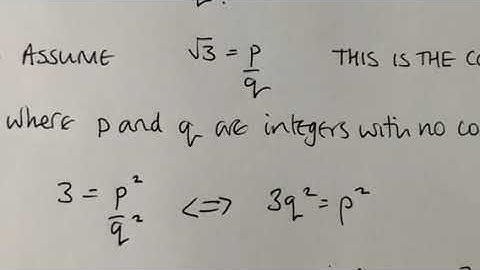 ASSUME √3 = p/q THIS IS THE
where p and q are integers with no
3 = p²/q² <=> 3q² = p²